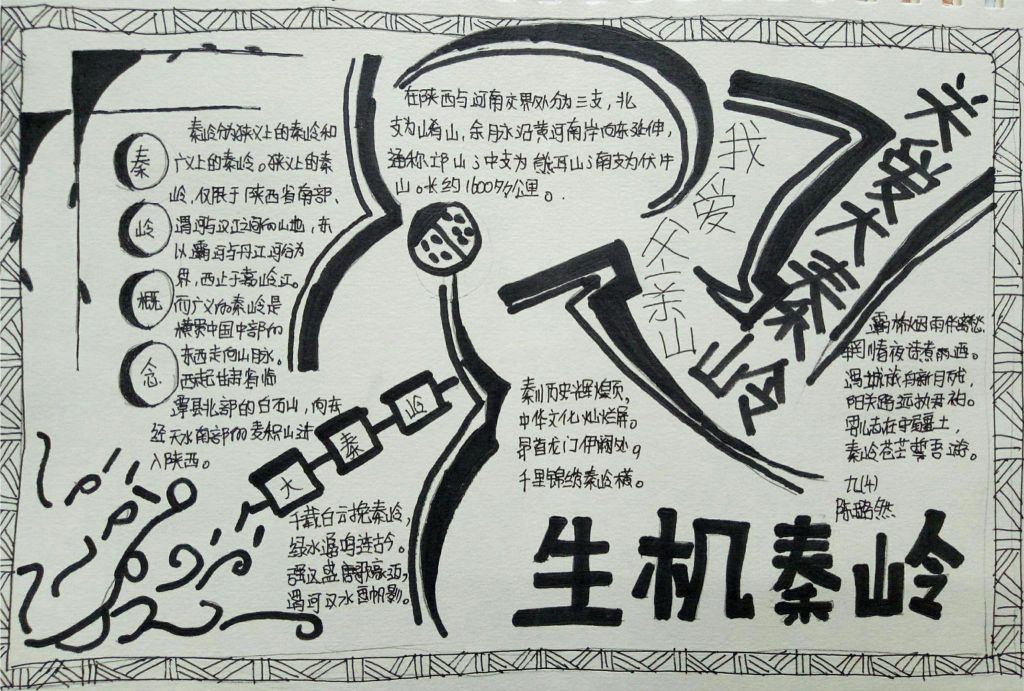 秦
岭
概
念
秦岭分为狭义上的秦岭和
广义上的秦岭。狭义上的秦
岭,仅限于陕西省南部、
渭河与汉江之间的山地,东
以灞河与丹江河谷为
界,西止于嘉岭江。
而广义的秦岭是
横贯中国中部的
东西走向山脉。
西起甘肃省临
潭县北部的白石山,向东
经天水南部的麦积山进
入陕西。
在陕西与河南交界处分为三支,北
支为崤山,余脉沿黄河南岸向东延伸,
通称邙山;中支为熊耳山;南支为伏牛
山。长约1600多公里。
我爱父亲山
关爱大秦岭
大秦岭
千载白云挽秦岭,
绿水
连古今。
强汉盛唐歌
渭河汉水
帆影。
秦川历史辉煌页,
中华文化灿烂屏。
昂首龙门伊阙处。
千里锦绣秦岭横。
灞桥烟雨伴离愁
辋川春夜诗煮酒。
渭城旅舍新月
阳关路远故君袍。
男儿志在守疆土,
秦岭苍茫誓吾游。
九(4)
陈
然
生机秦岭